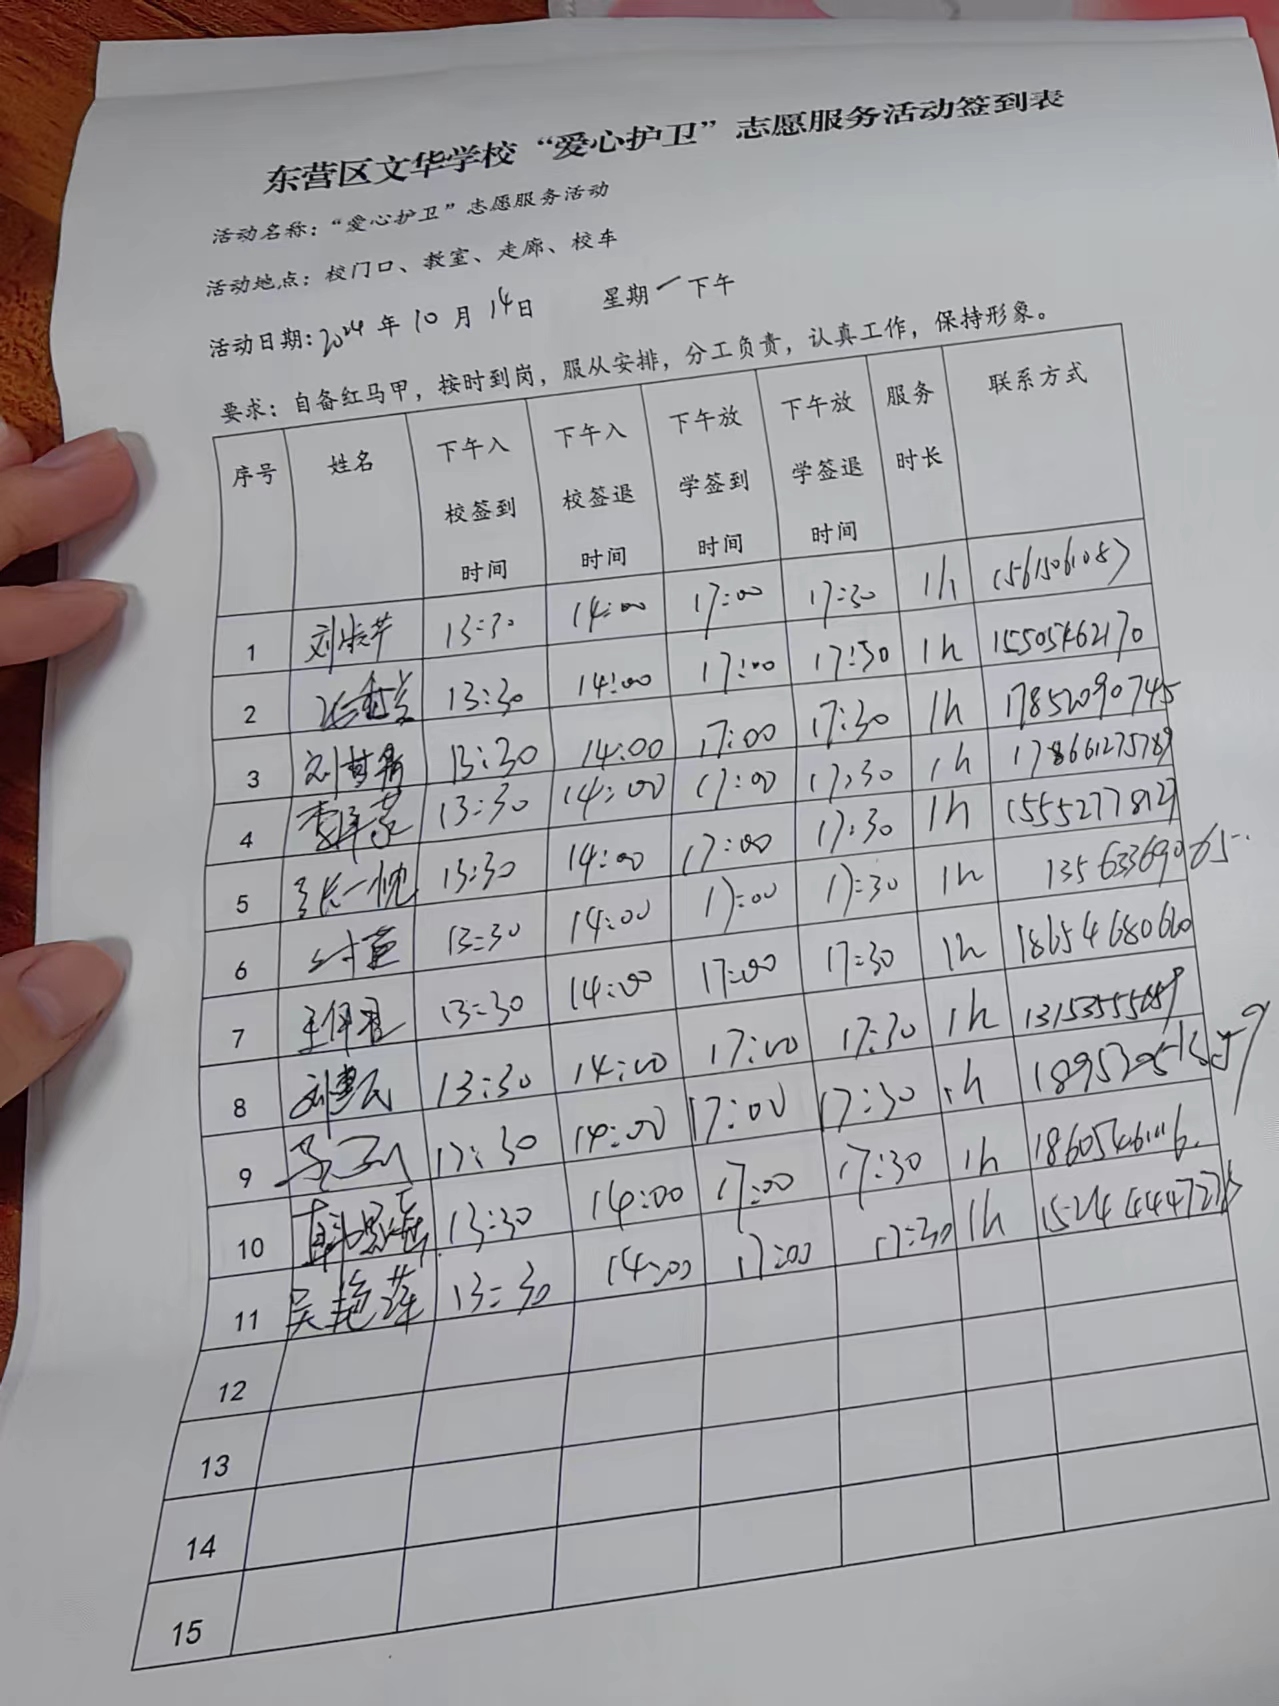 东营区文华学校“爱心护卫”志愿服务活动签到表
活动名称：“爱心护卫”志愿服务活动
活动地点：校门口、教室、走廊、校车
活动日期：2024年10月14日 星期一下午
要求：自备红马甲，按时到岗，服从安排，分工负责，认真工作，保持形象。
序号 姓名 下午入校签到时间 下午入校签退时间 下午放学签到时间 下午放学签退时间 服务时长 联系方式
1 13:30 14:00 17:00 17:30 1h 15615061087
2 13:30 14:00 17:00 17:30 1h 15505462170
3 13:30 14:00 17:00 17:30 1h 17852090745
4 13:30 14:00 17:00 17:30 1h 178661275789
5 张一帆 13:30 14:00 17:00 17:30 1h 15552778129
6 13:30 14:00 17:00 17:30 1h 13563369065
7 13:30 14:00 17:00 17:30 1h 18654680660
8 刘建民 13:30 14:00 17:00 17:30 1h
9 13:30 14:00 17:00 17:30 1h
10 13:30 14:00 17:00 17:30 1h
11 吴艳萍 13:30 14:00 17:00 17:30 1h
12
13
14
15